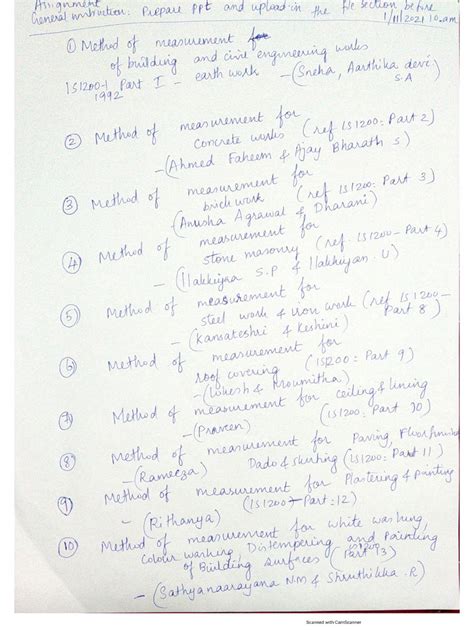 Assignment
General instruction: Prepare PPT and upload in the file section before
1/11/2021 10 am
① Method of measurement for
of building and civil engineering works
IS1200-1 Part I - earth work - (Sneha, Aarthika devi
1992 S.A
② Method of measurement for
concrete works (ref IS1200: Part 2)
- (Ahmed Faheem & Ajay Bharath S)
③ Method of measurement for
brick work (ref IS1200: Part 3)
- (Anusha Agrawal & Dharani)
④ Method of measurement for
stone masonry (ref. IS1200 - Part 4)
- (Ilakkiyaa S.P & Ilakkiyan. U)
⑤ Method of measurement for
steel work & iron work (ref IS1200 -
Part 8)
- (Kansateshri & Keshini)
⑥ Method of measurement for
roof covering (IS1200: Part 9)
- (Lokesh & Moumitha)
⑦ Method of measurement for ceiling & lining
- (Praveen) (IS1200: Part 10)
⑧ Method of measurement for Paving, Floor finishes
Dado & skirting (IS1200: Part 11)
- (Rameeza)
⑨ Method of measurement for Plastering & Pointing
(IS1200 - Part: 12)
- (Rithanya)
⑩ Method of measurement for white washing,
Colour washing, Distempering and Painting
of Building surfaces (IS1200 Part 13)
- (Sathyanaarayana N.M & Shruthikka. R)
Scanned with CamScanner